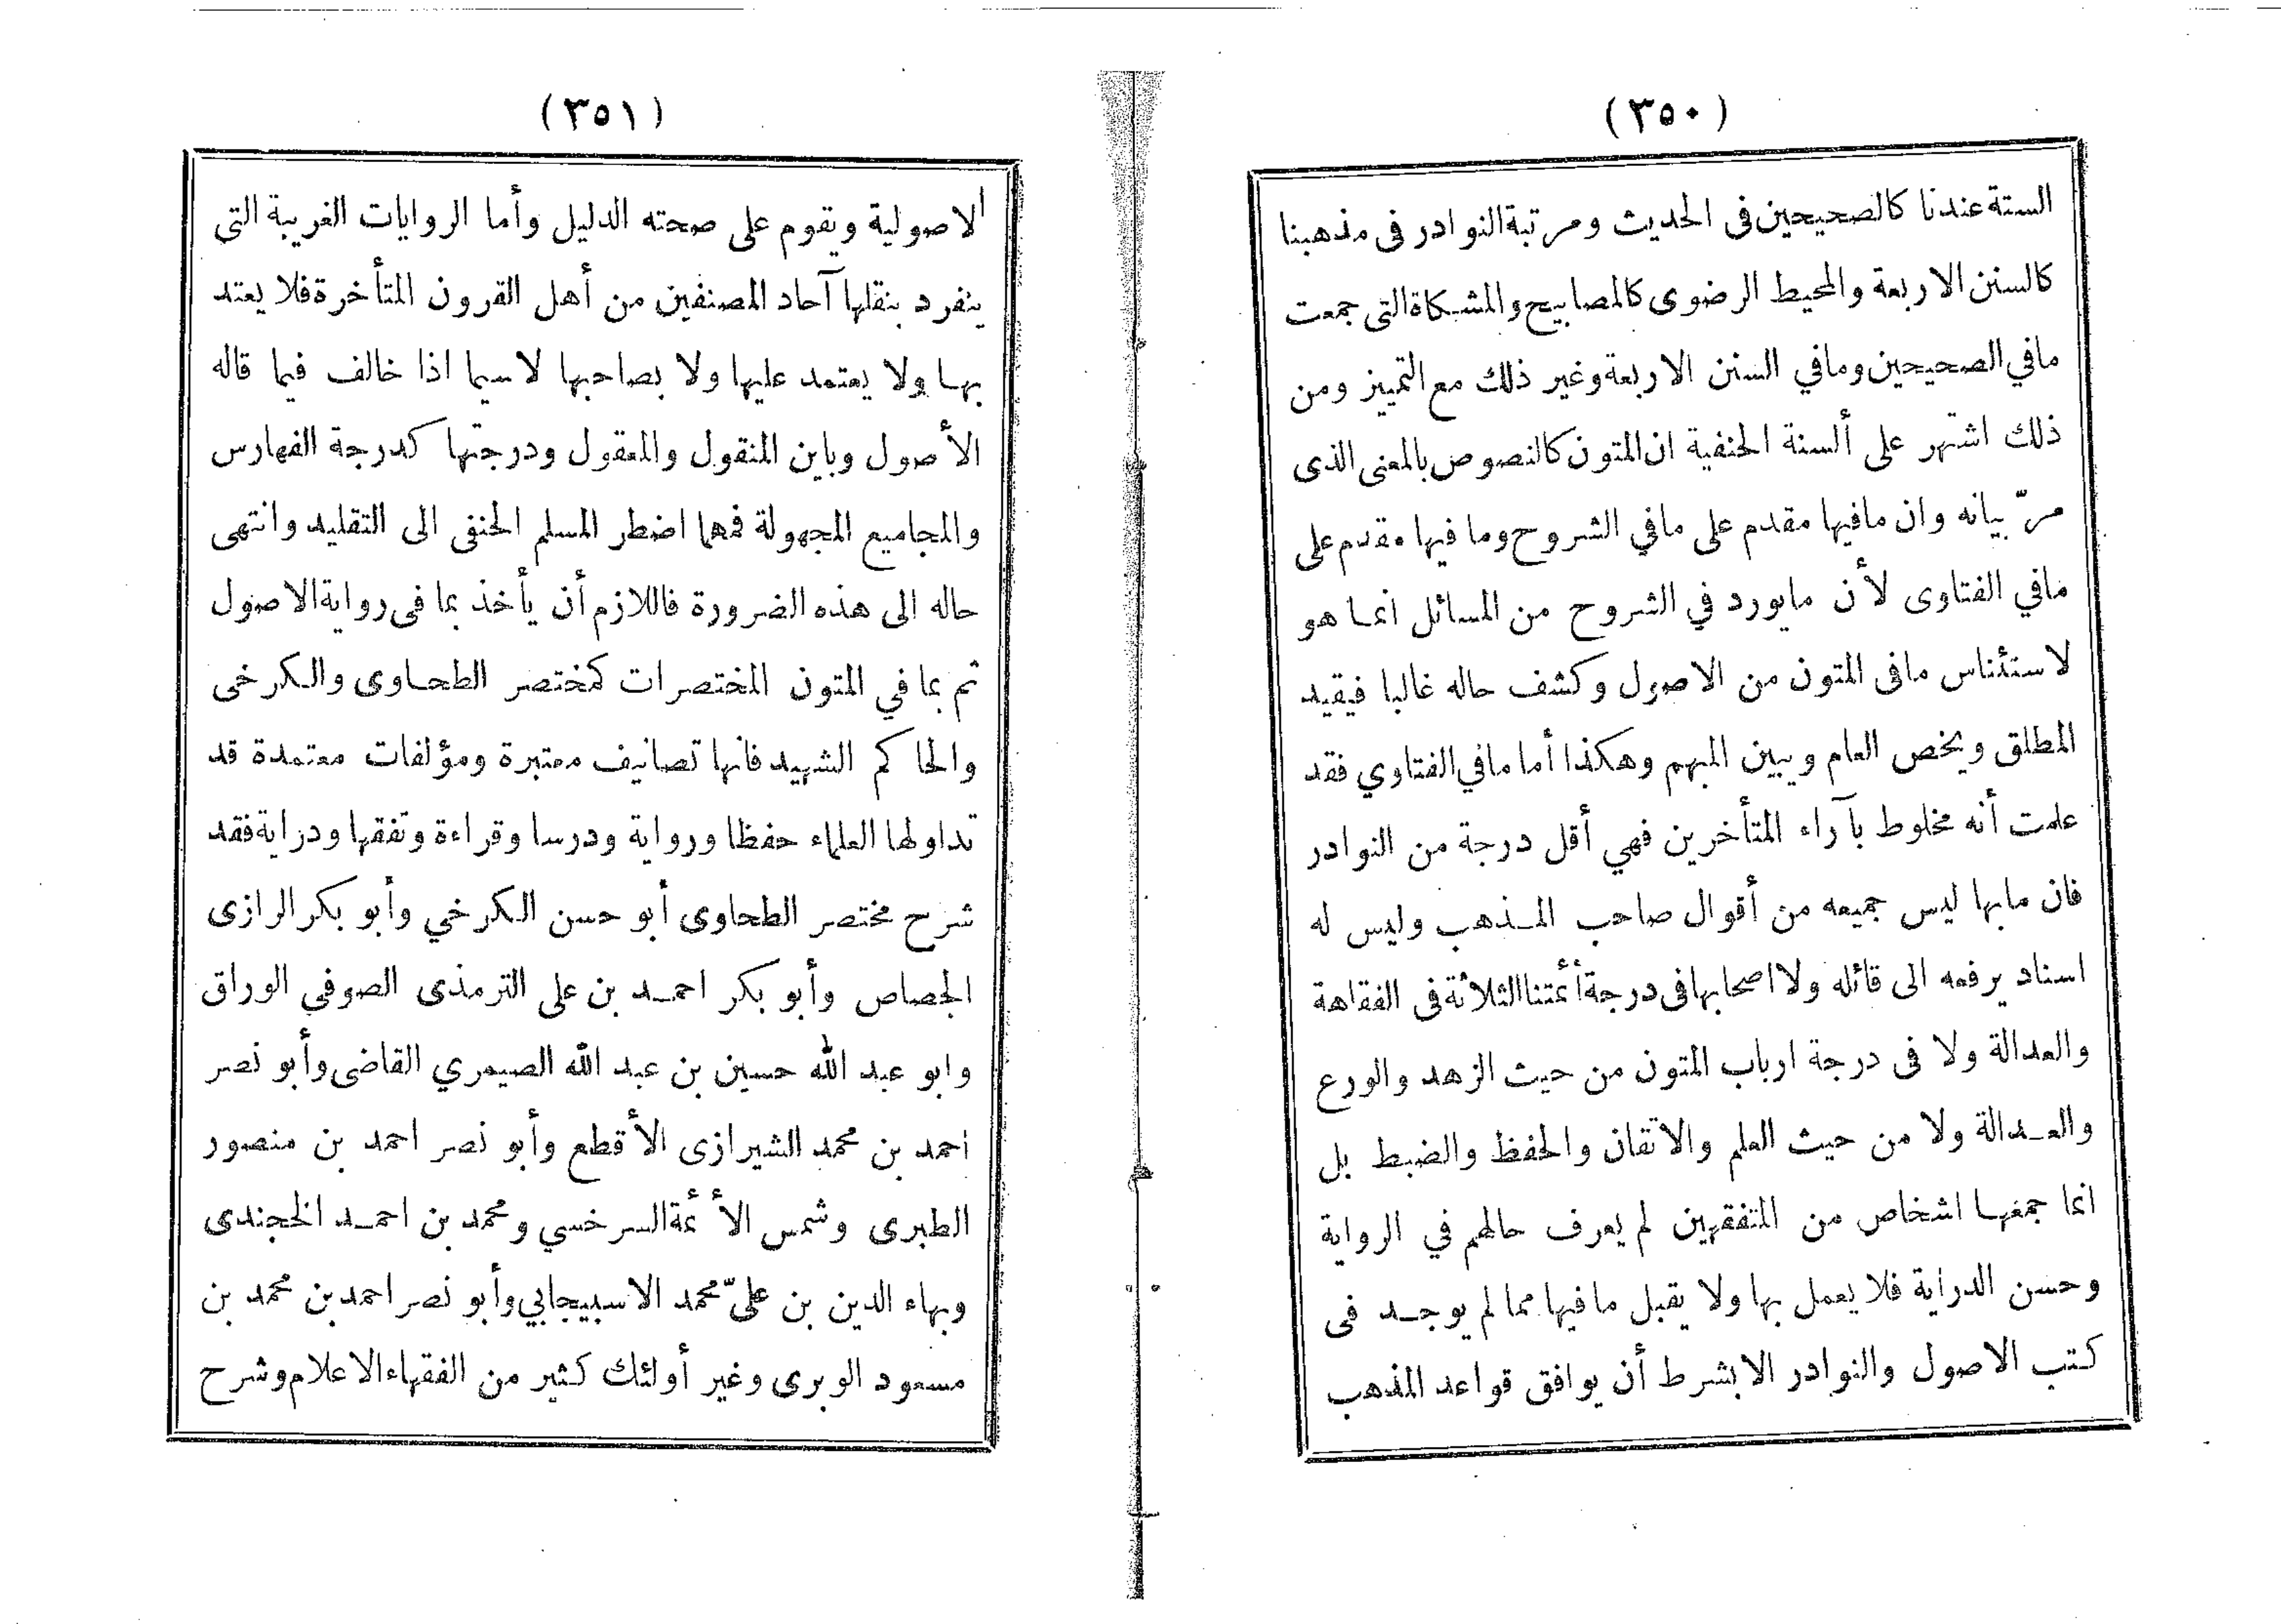 (٣٥٠)
الستة عندنا كالصحيحين فى الحديث ومرتبة النوادر فى مذهبنا
كالسنن الاربعة والمحيط الرضوى كالمصابيح والمشكاة التى جمعت
مافي الصحيحين ومافي السنن الاربعة وغير ذلك مع التمييز ومن
ذلك اشتهر على ألسنة الحنفية ان المتون كالنصوص بالمعنى الذى
مرّ بيانه وان مافيها مقدم على مافي الشروح وما فيها مقدم على
مافي الفتاوى لأن مايورد في الشروح من المسائل انما هو
لاستئناس مافى المتون من الاصول وكشف حاله غالبا فيقيد
المطلق ويخص العام ويبين المبهم وهكذا أما مافي الفتاوي فقد
علمت أنه مخلوط بآراء المتأخرين فهي أقل درجة من النوادر
فان مابها ليس جميعه من أقوال صاحب المذهب وليس له
اسناد يرفعه الى قائله ولا اصحابها فى درجة أئمتنا الثلاثة فى الفقاهة
والعدالة ولا فى درجة ارباب المتون من حيث الزهد والورع
والعدالة ولا من حيث العلم والاتقان والحفظ والضبط بل
انما جمعها اشخاص من المتفقهين لم يعرف حالهم في الرواية
وحسن الدراية فلا يعمل بها ولا يقبل ما فيها مما لم يوجد فى
كتب الاصول والنوادر الا بشرط أن يوافق قواعد المذهب
(٣٥١)
الاصولية ويقوم على صحته الدليل وأما الروايات الغريبة التى
ينفرد بنقلها آحاد المصنفين من أهل القرون المتأخرة فلا يعتد
بها ولا يعتمد عليها ولا بصاحبها لاسيما اذا خالف فيما قاله
الأصول وباين المنقول والمعقول ودرجتها كدرجة الفهارس
والمجاميع المجهولة فمهما اضطر المسلم الحنفى الى التقليد وانتهى
حاله الى هذه الضرورة فاللازم أن يأخذ بما فى رواية الاصول
ثم بما في المتون المختصرات كمختصر الطحاوى والكرخى
والحاكم الشهيد فانها تصانيف معتبرة ومؤلفات معتمدة قد
تداولها العلماء حفظا ورواية ودرسا وقراءة وتفقها ودراية فقد
شرح مختصر الطحاوى أبو حسن الكرخي وأبو بكر الرازى
الجصاص وأبو بكر احمد بن على الترمذى الصوفي الوراق
وابو عبد الله حسين بن عبد الله الصيمري القاضى وأبو نصر
احمد بن محمد الشيرازى الأقطع وأبو نصر احمد بن منصور
الطبرى وشمس الأئمة السرخسي ومحمد بن احمد الخجندى
وبهاء الدين بن علىّ محمد الاسبيجابي وأبو نصر احمد بن محمد بن
مسعود الوبرى وغير أولئك كثير من الفقهاء الاعلام وشرح